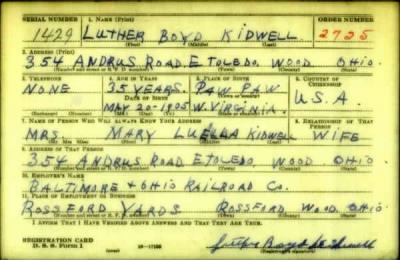 SERIAL NUMBER 1. NAME (Print) ORDER NUMBER
1429 LUTHER BOYD KIDWELL 2725
(First) (Middle) (Last)
2. ADDRESS (Print)
354 ANDRUS ROAD. E TOLEDO. WOOD OHIO.
(Number and street or R. F. D. number) (Town) (County) (State)
3. TELEPHONE 4. AGE IN YEARS 5. PLACE OF BIRTH 6. COUNTRY OF CITIZENSHIP
NONE 35 YEARS. PAW PAW
DATE OF BIRTH (Town or county) U.S.A.
MAY 20-1905 W. VIRGINIA.
7. NAME OF PERSON WHO WILL ALWAYS KNOW YOUR ADDRESS 8. RELATIONSHIP OF THAT PERSON
MRS. MARY LUELLA KIDWELL WIFE
(Mr., Mrs., Miss) (First) (Middle) (Last)
9. ADDRESS OF THAT PERSON
354 ANDRUS ROAD E TOLEDO. WOOD OHIO
(Number and street or R. F. D. number) (Town) (County) (State)
10. EMPLOYER'S NAME
BALTIMORE + OHIO RAILROAD CO.
11. PLACE OF EMPLOYMENT OR BUSINESS
ROSSFORD YARDS ROSSFORD WOOD. OHIO.
(Number and street or R. F. D. number) (Town) (County) (State)
I AFFIRM THAT I HAVE VERIFIED ABOVE ANSWERS AND THAT THEY ARE TRUE.
REGISTRATION CARD
D. S. S. Form 1 Luther Boyd Kidwell
(Registrant's signature)